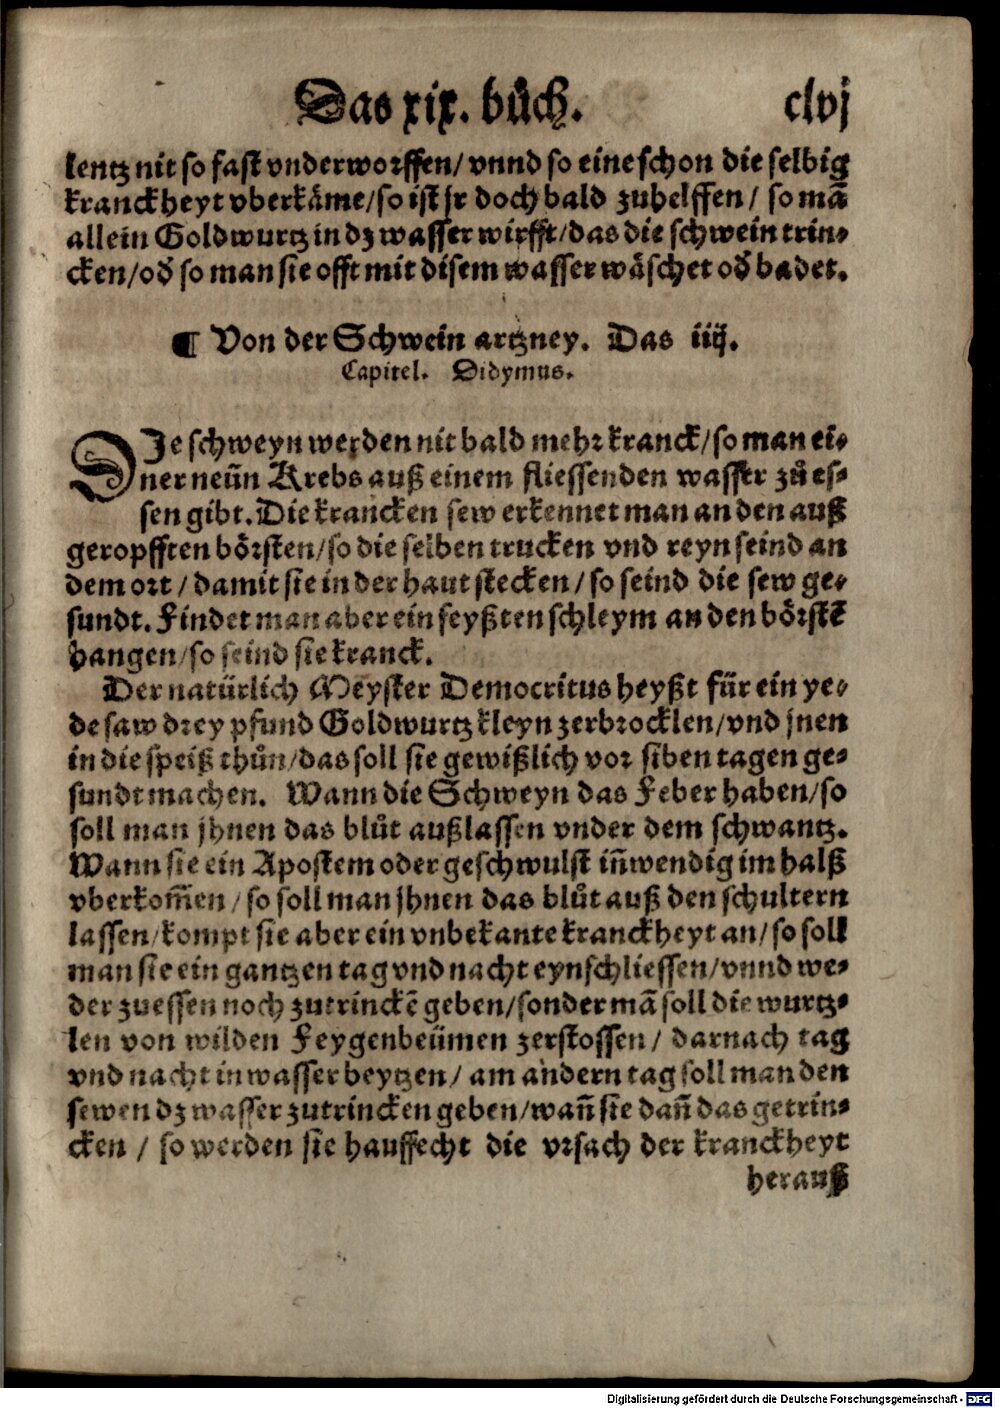 Das xix. bůch. clvj
lentz nit so fast vnderworffen/ vnnd so eine schon die selbig
kranckheyt vberkäme/so ist jr doch bald zuhelffen/ so mā
allein Goldwurtz in dz wasser wirfft/das die schwein trin⸗
cken/oď so man sie offt mit disem wasser wäschet oď badet.
¶ Von der Schwein artzney. Das iiij.
Capitel. Didymus.
DJe schweyn werden nit bald mehr kranck/so man ei⸗
ner neün Krebs auß einem fliessenden wasser zů es⸗
sen gibt. Die krancken sew erkennet man an den auß
geropfften börsten/so die selben trucken vnd reyn seind an
dem ort / damit sie in der haut stecken/ so seind die sew ge⸗
sundt. Findet man aber ein feyßten schleym an den börstē
hangen/so seind sie kranck.
Der natürlich Meyster Democritus heyßt für ein ye⸗
de saw drey pfund Goldwurtz kleyn zerbrocklen/vnd jnen
in die speiß thůn/das soll sie gewißlich vor siben tagen ge⸗
sundt machen. Wann die Schweyn das Feber haben/so
soll man jhnen das blůt außlassen vnder dem schwantz.
Wann sie ein Apostem oder geschwulst iñwendig im halß
vberkom̃en / so soll man jhnen das blůt auß den schultern
lassen/kompt sie aber ein vnbekante kranckheyt an/so soll
man sie ein gantzen tag vnd nacht eynschliessen/vnnd we⸗
der zuessen noch zutrinckē geben/sonder mā soll die wurtz⸗
len von wilden Feygenbeümen zerstossen/ darnach tag
vnd nacht in wasser beytzen/ am andern tag soll man den
sewen dz wasser zutrincken geben/wañ sie dañ das getrin⸗
cken / so werden sie hauffecht die vrsach der kranckheyt
herauß
Digitalisierung gefördert durch die Deutsche Forschungsgemeinschaft - DFG